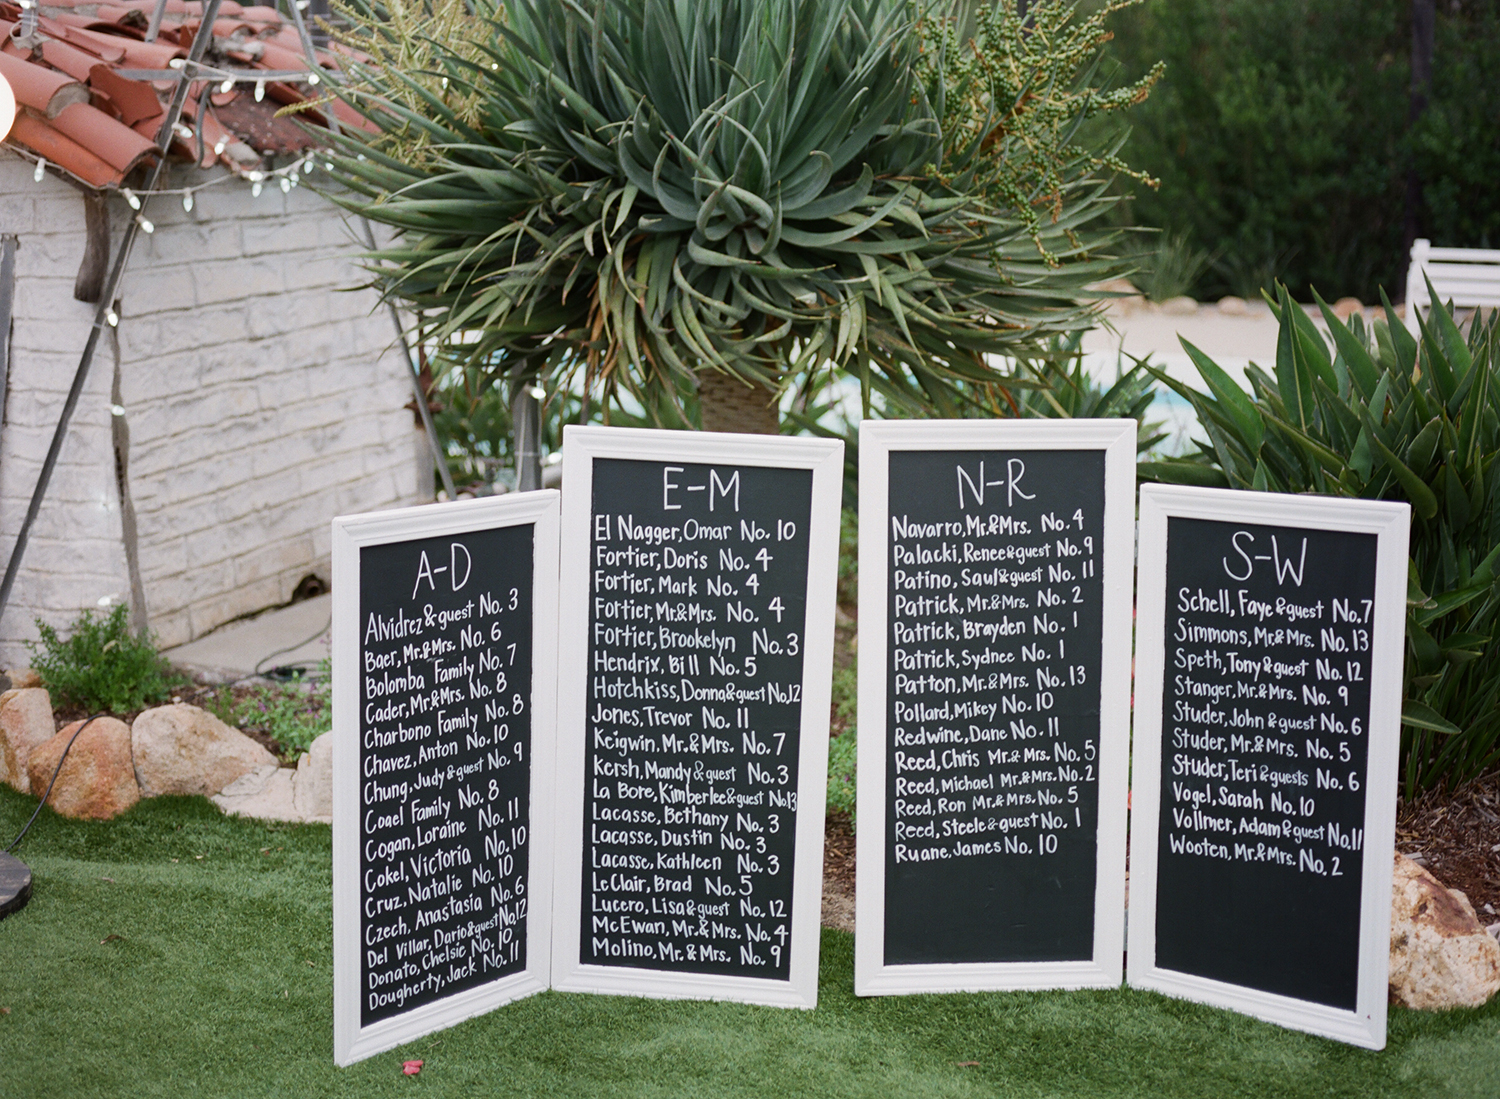 A-D
Alvidrez & guest No. 3
Baer, Mr.&Mrs. No. 6
Bolomba Family No. 7
Cader, Mr.&Mrs. No. 8
Charbono Family No. 8
Chavez, Anton No. 10
Chung, Judy & guest No. 9
Coael Family No. 8
Cogan, Loraine No. 11
Cokel, Victoria No. 10
Cruz, Natalie No. 10
Czech, Anastasia No. 6
Del Villar, Dario & guest No. 12
Donato, Chelsie No. 10
Dougherty, Jack No. 11
E-M
El Nagger, Omar No. 10
Fortier, Doris No. 4
Fortier, Mark No. 4
Fortier, Mr.&Mrs. No. 4
Fortier, Brookelyn No. 3
Hendrix, Bill No. 5
Hotchkiss, Donna & guest No. 12
Jones, Trevor No. 11
Keigwin, Mr.&Mrs. No. 7
Kersh, Mandy & guest No. 3
La Bore, Kimberlee & guest No. 13
Lacasse, Bethany No. 3
Lacasse, Dustin No. 3
Lacasse, Kathleen No. 3
LeClair, Brad No. 5
Lucero, Lisa & guest No. 12
McEwan, Mr.&Mrs. No. 4
Molino, Mr.&Mrs. No. 9
N-R
Navarro, Mr.&Mrs. No. 4
Palacki, Renee & guest No. 9
Patino, Saul & guest No. 11
Patrick, Mr.&Mrs. No. 2
Patrick, Brayden No. 1
Patrick, Sydnee No. 1
Patton, Mr.&Mrs. No. 13
Pollard, Mikey No. 10
Redwine, Dane No. 11
Reed, Chris Mr.&Mrs. No. 5
Reed, Michael Mr.&Mrs. No. 2
Reed, Ron Mr.&Mrs. No. 5
Reed, Steele & guest No. 1
Ruane, James No. 10
S-W
Schell, Faye & guest No. 7
Simmons, Mr.&Mrs. No. 13
Speth, Tony & guest No. 12
Stanger, Mr.&Mrs. No. 9
Studer, John & guest No. 6
Studer, Mr.&Mrs. No. 5
Studer, Teri & guests No. 6
Vogel, Sarah No. 10
Vollmer, Adam & guest No. 11
Wooten, Mr.&Mrs. No. 2